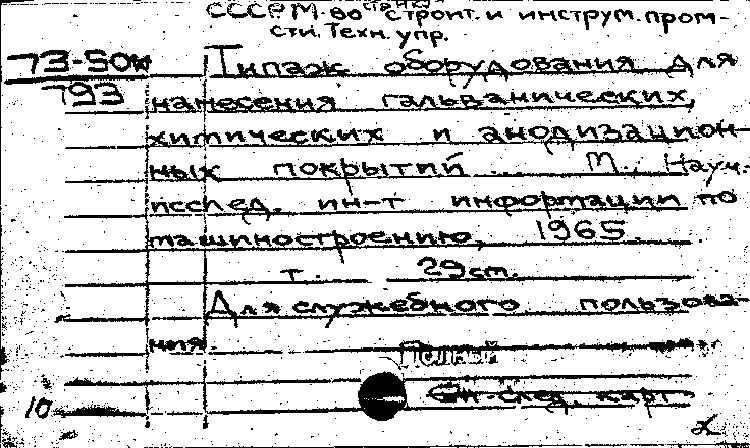 СССР. М-во станко-
строит. и инструм. пром-
сти. Техн. упр.
73-50ж
793
Типаж оборудования для
нанесения гальванических,
химических и анодизацион-
ных покрытий ... М., Науч.-
исслед. ин-т информации по
машиностроению, 1965.
т. 29 ст.
Для служебного пользова-
ния.
Полный
См. след. карт
10